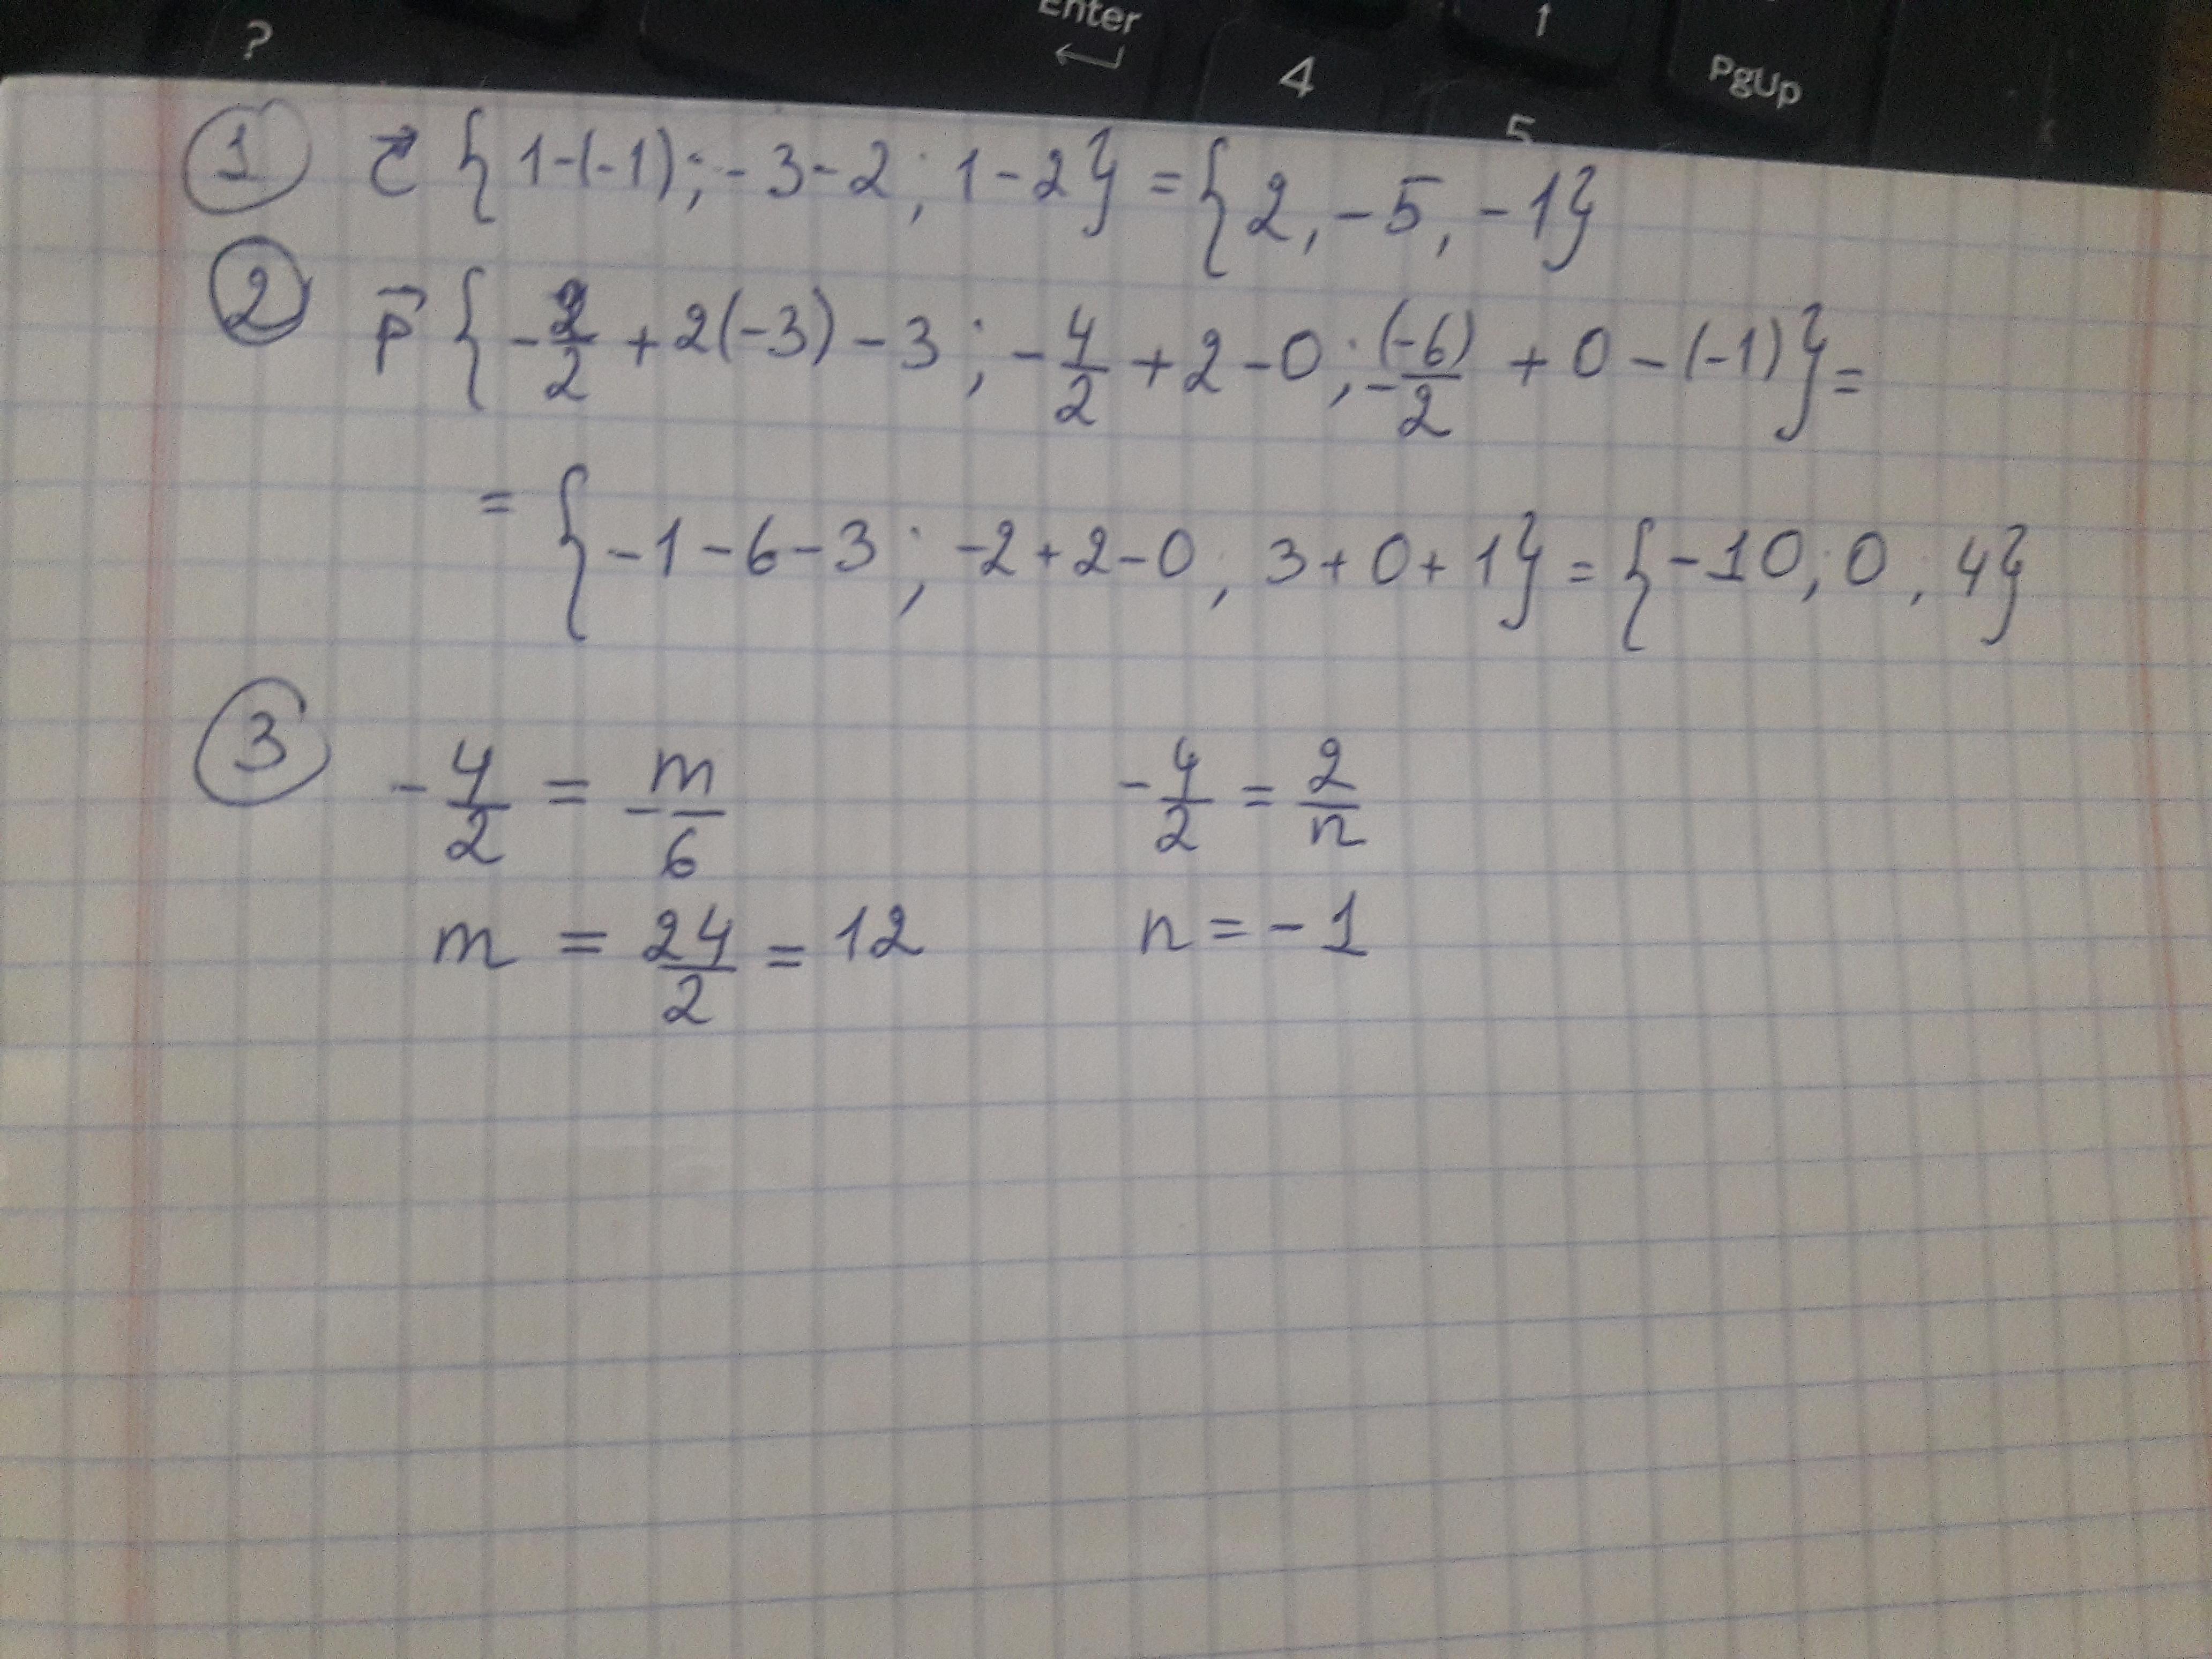 ?
Enter
4
5
↑
PgUp
① c⃗ {1-(-1); -3-2; 1-2} = {2, -5, -1}
② p⃗ {-2/2 + 2(-3) - 3; -4/2 + 2 - 0; -(-6)/2 + 0 - (-1)} =
= {-1-6-3; -2+2-0; 3+0+1} = {-10; 0; 4}
③ -4/2 = -m/6    -4/2 = 2/n
m = 24/2 = 12    n = -1